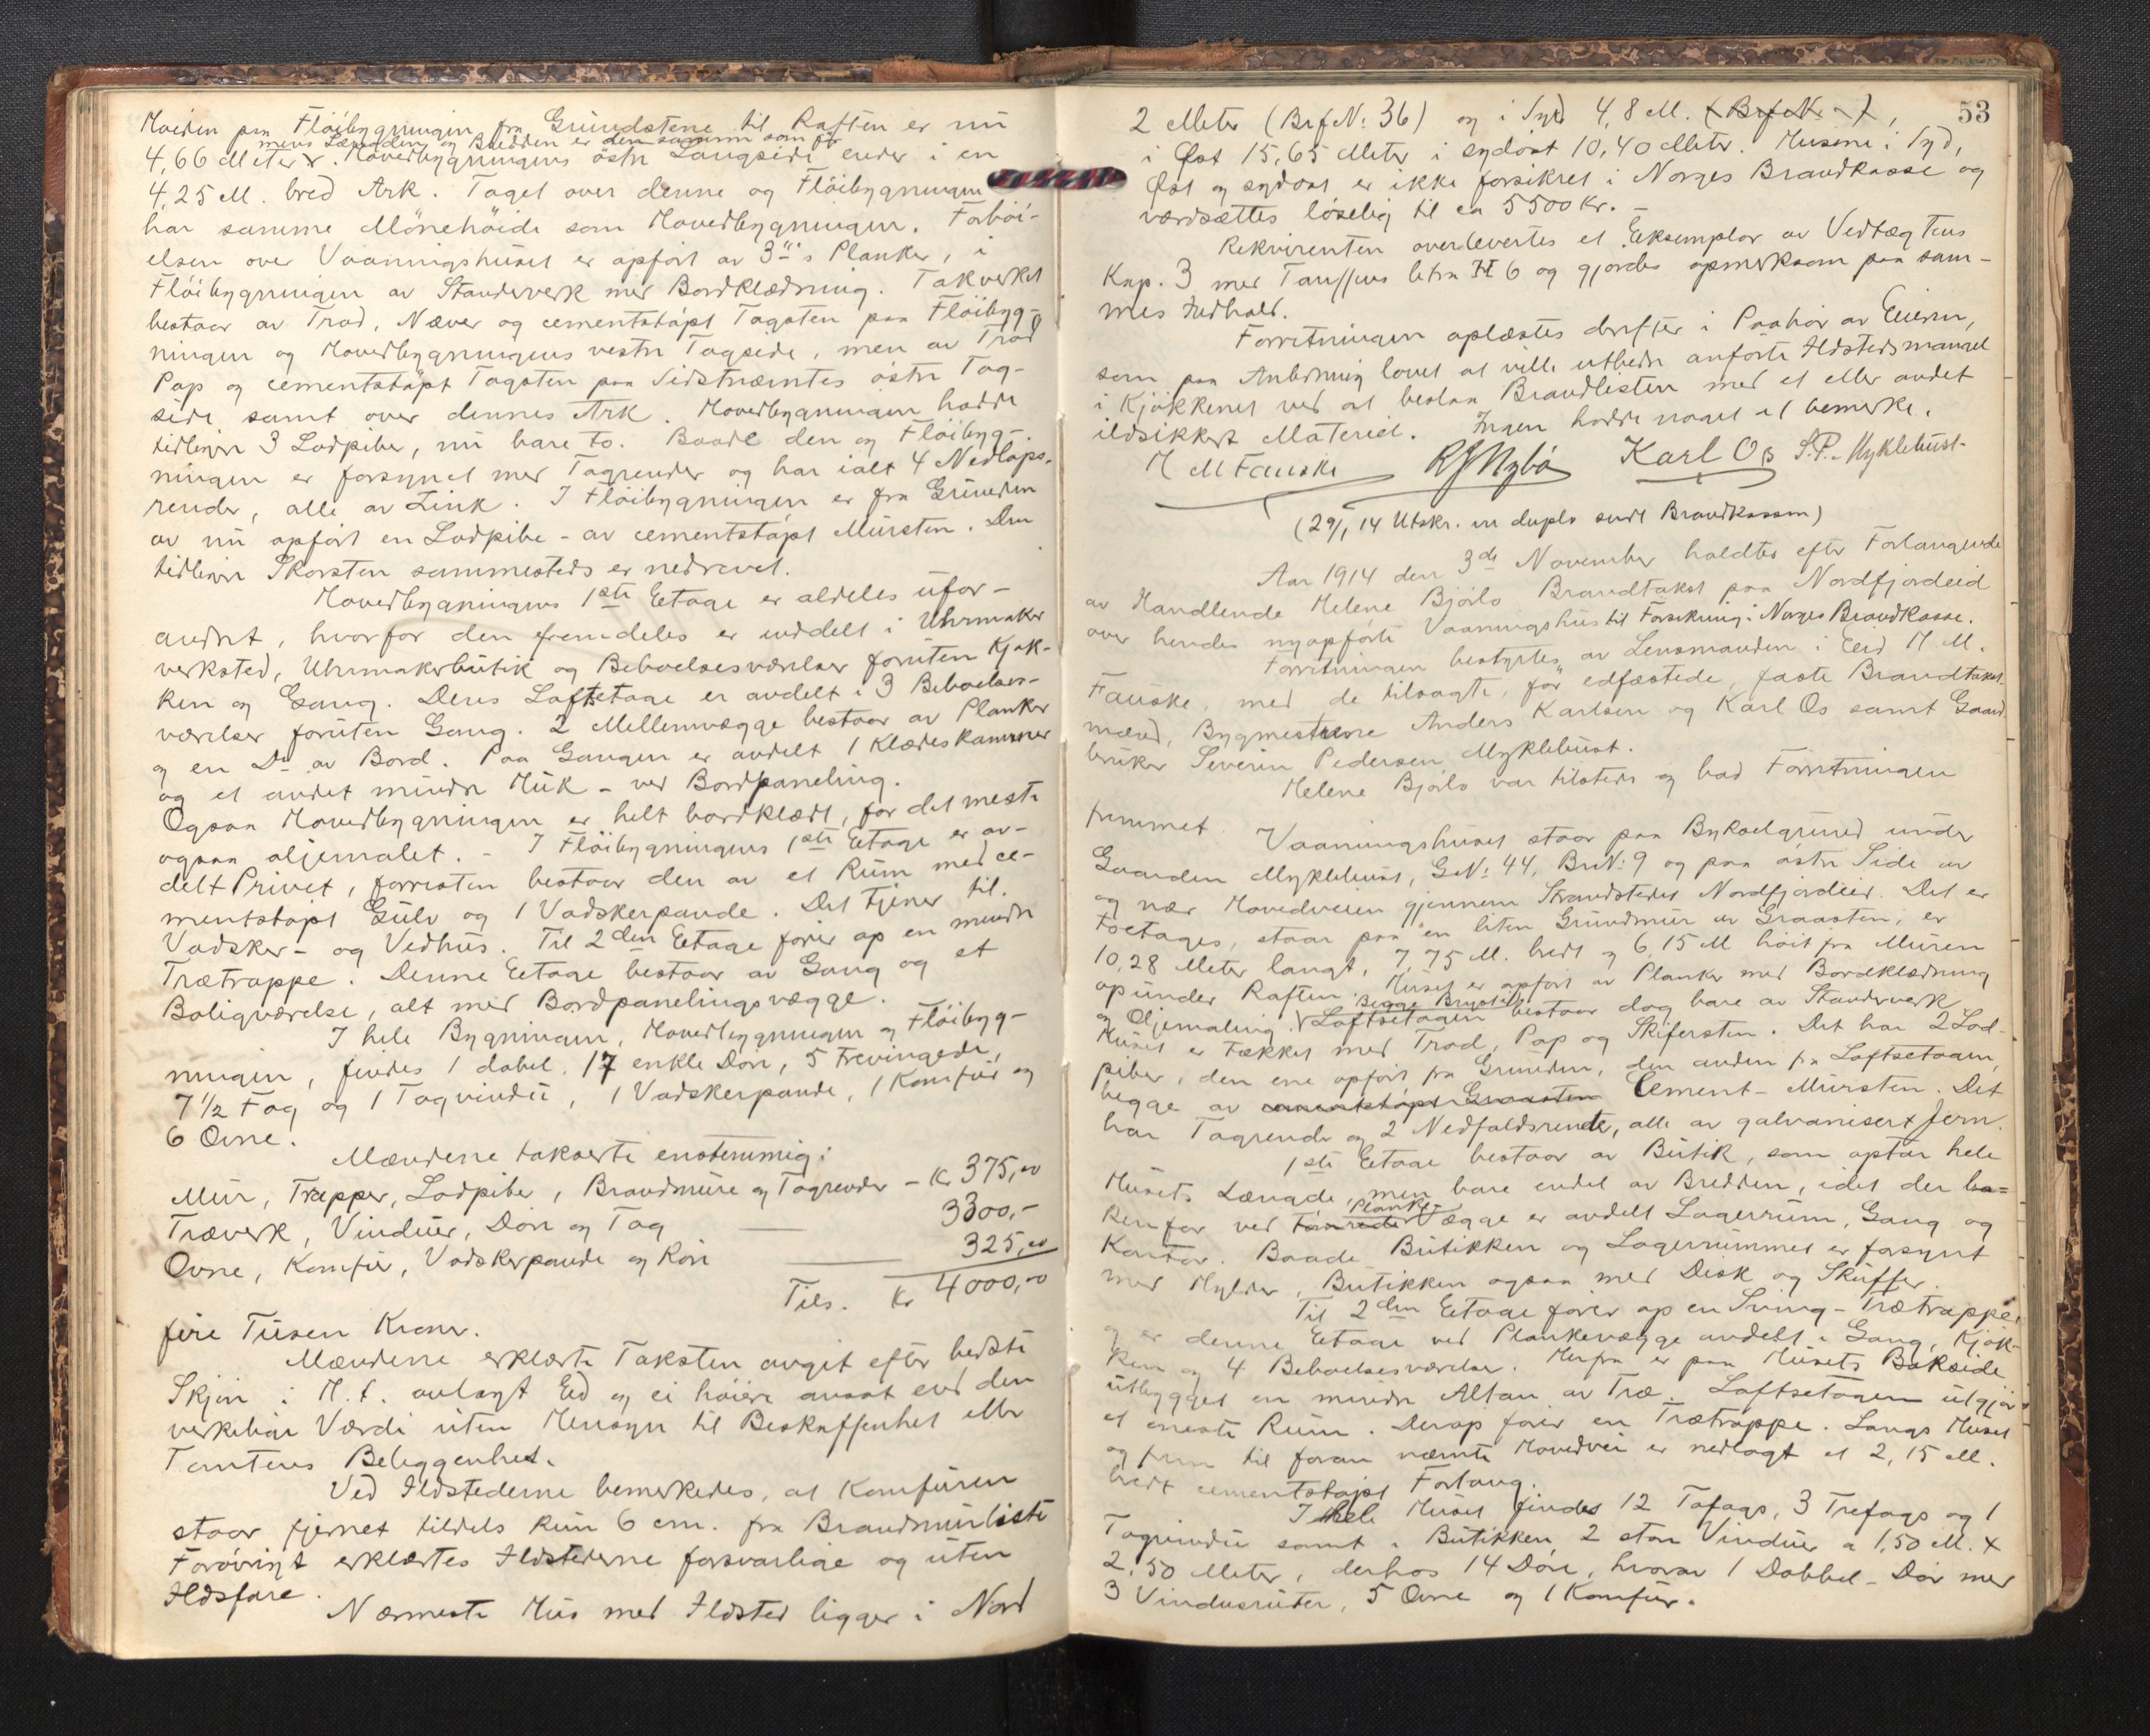 Høiden paa Fløibygningen fra Grundstene til Raften er nu
mens Længden og Bredden er den samme som før
4,66 Meter. Hovedbygningens østre Langside ender i en
4,25 M. bred Ark. Taget over denne og Fløibygningen
har samme Mönehöide som Hovedbygningen. Forhöi-
elsen over Vaaningshuset er opfört av 3"s Planker, i
Flöibygningen av Standerverk med Bordklædning. Takverket
bestaar av Trod, Næver og cementstöpt Tagsten paa Flöibyg-
ningen og Hovedbygningens vestre Tagside, men av Trod
Pap og cementstöpt Tagsten paa Sidstnæmtes östre Tag-
side samt over dennes Ark. Hovedbygningen hadde
tidligere 3 Lodpiber, nu bare to. Baade den og Flöibyg-
ningen er forsynet med Tagrender og har ialt 4 Nedløps-
render, alle av Zink. I Flöibygningen er fra Grunden
av nu opfört en Lodpibe - av cementstöpt Mursten. Den
tidligere Skorsten sammesteds er nedrevet.
Hovedbygningens 1ste Etage er aldeles ufor-
andret, hvorfor den fremdeles er inddelt i Uhrmaker
verksted, Uhrmakerbutik og Beboelsesværelser foruten Kjøk-
ken og Gang. Dens Loftsetage er avdelt i 3 Beboelses-
værelser foruten Gang. 2 Mellemvægge bestaar av Planker
og en Do av Bord. Paa Gangen er avdelt 1 Klædeskammer
og et andet mindre Huk - ved Bordpaneling.
Ogsaa Hovedbygningen er helt bordklædt, for det meste
ogsaa oljemalet. - I Flöibygningens 1ste Etage er av-
delt Privet, forresten bestaar den av et Rum med ce-
mentstöpt Gulv og 1 Vadskerpande. Det tjener til
Vadsker- og Vedhus. Til 2den Etage förer op en mindre
Trætrappe. Denne Etage bestaar av Gang og et
Boligværelse, alt med Bordpanelingsvægge.
I hele Bygningen, Hovedbygningen og Flöibyg-
ningen, findes 1 dobel. 17 enkle Döre, 5 trevingede,
7 1/2 Fag og 1 Tagvindu, 1 Vadskerpande, 1 Komfur og
6 Ovne.
Mændene takserte enstemmig:
Mur, Trapper, Lodpiber, Brandmure og Tagrender - Kr 375,00
Træverk, Vinduer, Döre og Tag 3300,-
Ovne, Komfur, Vadskerpande og Rör 325,00
Tils. Kr 4000,00
fire Tusen Kroner.
Mændene erklærte Taksten avgit efter bedste
Skjön i H.t. avlagt Ed og ei höiere ansat end den
virkelige Værdi uten Hensyn til Beskaffenhet eller
Tomtens Beliggenhet.
Ved Ildstederne bemerkedes, at Komfuren
staar fjernet tildels kun 6 cm. fra Brandmurliste
Forövrigt erklærtes Ildstederne forsvarlige og uten
Ildsfare.
Nærmeste Hus med Ildsted ligger i Nord
53
2 Meter (Brf No: 36) og i Syd 4,8 M. (Brf No - ),
i Öst 15,65 Meter i sydöst 10,40 Meter. Husene i Syd,
Öst og sydöst er ikke forsikret i Norges Brandkasse og
værdsættes löselig til ca 5500 kr. -
Rekvirenten overlevertes et Eksemplar av Vedtægtens
Kap. 3 med Tariffens litra H 6 og gjordes opmerksom paa sam-
mes Indhold.
Forretningen oplæstes derefter i Paahör av Eieren,
som paa Anledning lovet at ville utbedre anförte Ildstedsmangel
i Kjøkkenet ved at beslaa Brandlisten med et eller andet
ildsikkert Materiel. Ingen hadde noget at bemerke.
H M Fauske R J Nybö Karl Os S.P. Myklebust
(29/1 14 Utskr. in duplo sendt Brandkassen)
Aar 1914 den 3de November holdtes efter Forlangende
av Handlende Helene Bjørlo Brandtakst paa Nordfjordeid
over hendes nyopförte Vaaningshus til Forsikring i Norges Brandkasse.
Forretningen bestyrtes av Lensmanden i Eid H M.
Fauske, med de tilsagte, för edfæstede, faste Brandtakst-
mænd, Bygmestrene Anders Karlsen og Karl Os samt Gaard-
bruker Severin Pedersen Myklebust.
Helene Bjørlo var tilstede og bad Forretningen
fremmet.
Vaaningshuset staar paa Bykselgrund under
Gaarden Myklebust, G.No: 44, Br.No: 9 og paa östre Side av
og nær Hovedveien gjennem Strandstedet Nordfjordeid. Det er
toetages, staar paa en liten Grundmur av Graasten, er
10,28 Meter langt, 7,75 M. bredt og 6,15 M höit fra Muren
op under Raften. Huset er opfört av Planker med Bordklædning
Begge Bryst i
og Oljemaling. Loftsetagen bestaar dog bare av Standerverk
Huset er tækket med Trod, Pap og Skifersten. Det har 2 Lod-
piber, den ene opfört fra Grunden, den anden fra Loftsetagen,
begge av cementstöpt Graasten Cement-Mursten. Det
har Tagrende og 2 Nedfaldsrender, alle av galvanisert Jern.
1ste Etage bestaar av Butik, som optar hele
Husets Længde, men bare endel av Bredden, idet der ba-
Planke-
kenfor ved Vægge er avdelt Lagerrum, Gang og
Kontor. Baade Butikken og Lagerrummet er forsynt
med Hylder, Butikken ogsaa med Disk og Skuffer.
Til 2den Etage förer op en Sving-Trætrappe,
og er denne Etage ved Plankevægge avdelt i Gang, Kjøk-
ken og 4 Beboelsesværelser. Herfra er paa Husets Bakside
utbygget en mindre Altan av Træ. Loftsetagen utgjör
et eneste Rum. Derop förer en Trætrappe. Langs Huset
og frem til foran nævnte Hovedvei er nedlagt et 2,15 M.
bredt cementstöpt Fortaug.
I hele Huset findes 12 Tofags, 3 Trefags og 1
Tagvindu samt i Butikken 2 store Vinduer a 1,50 M. x
2,50 Meter, derhos 14 Döre, hvorav 1 Dobbel-Dör med
3 Vindusruter, 5 Ovne og 1 Komfur.